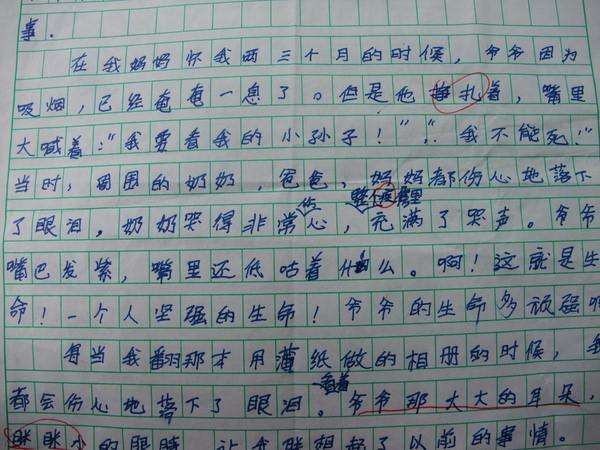 事.
在我妈妈怀我两三个月的时候，爷爷因为
吸烟，已经奄奄一息了。但是他挣扎着，嘴里
大喊着：“我要看我的小孙子！”，“我不能死！”
当时，周围的奶奶，爸爸，妈妈都伤心地落下
了眼泪，奶奶哭得非常伤心，整个房里充满了哭声。爷爷
嘴巴发紫，嘴里还低咕着什么。啊！这就是生
命！一个人坚强的生命！爷爷的生命多顽强啊
每当我翻那本用薄纸做的相册的时候，我
都会伤心地落下了眼泪。看着爷爷那大大的耳朵，
眯眯小的眼睛，让我联想起了以前的事情。